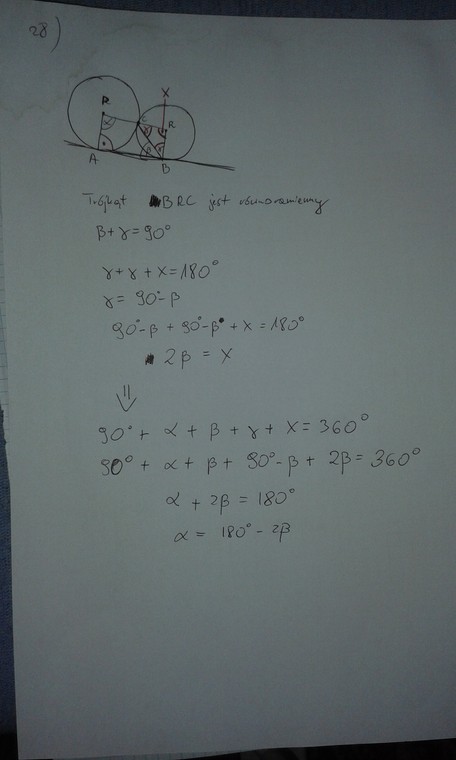 28)
X
R
α
C
γ
R
X
A
β
γ
B
Trójkąt BRC jest równoramienny
β + γ = 90°
γ + γ + x = 180°
γ = 90° - β
90° - β + 90° - β + x = 180°
2β = x
⇓
90° + α + β + γ + x = 360°
90° + α + β + 90° - β + 2β = 360°
α + 2β = 180°
α = 180° - 2β